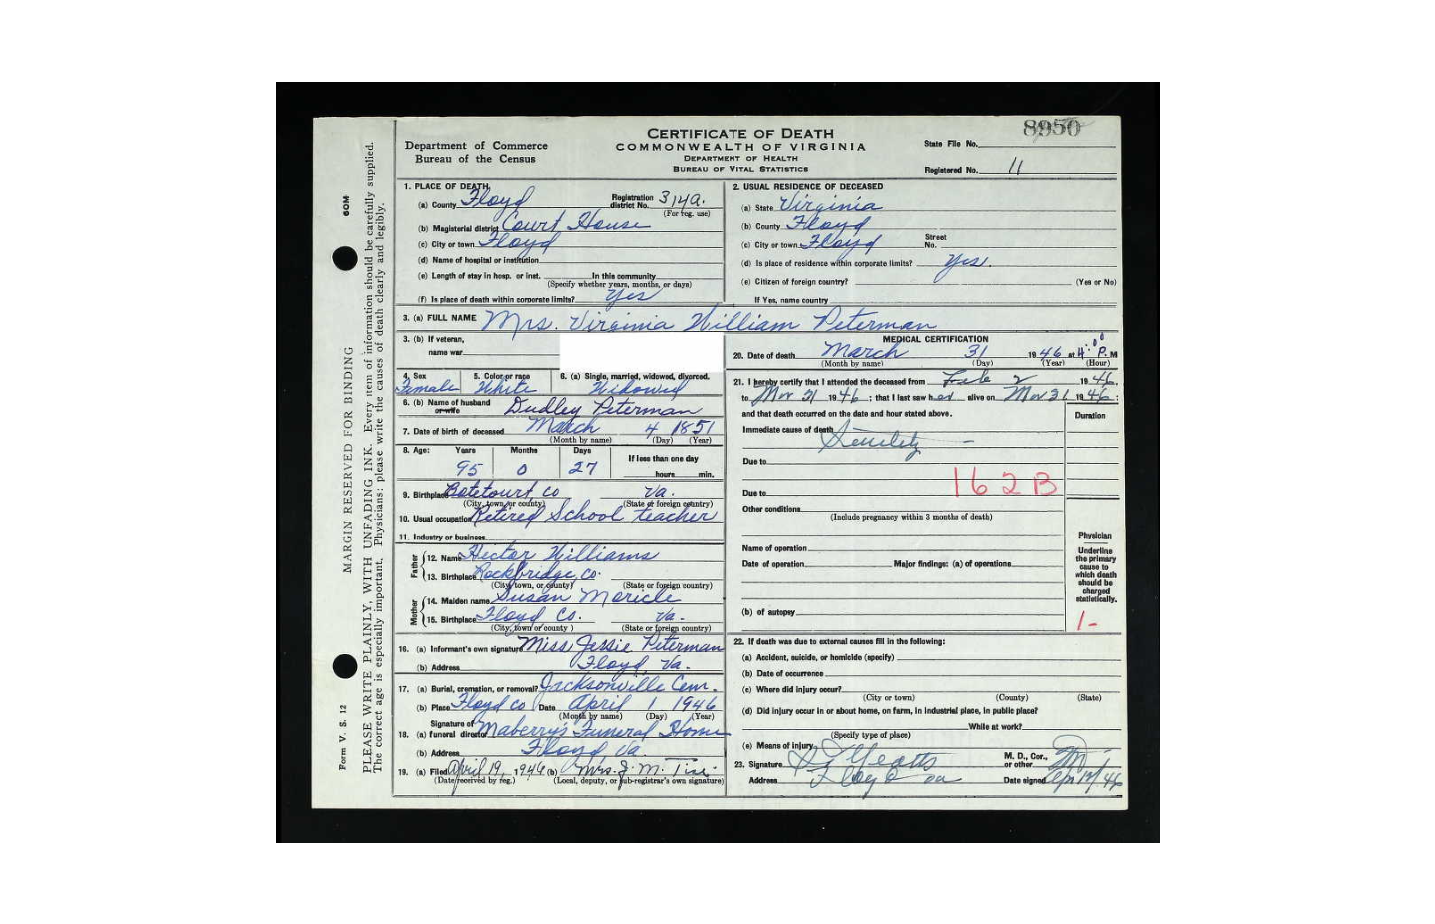 8950
CERTIFICATE OF DEATH
COMMONWEALTH OF VIRGINIA
DEPARTMENT OF HEALTH
BUREAU OF VITAL STATISTICS
Department of Commerce
Bureau of the Census
State File No.
Registered No. 11
MARGIN RESERVED FOR BINDING
PLEASE WRITE PLAINLY, WITH UNFADING INK. Every item of information should be carefully supplied.
The correct age is especially important. Physicians: please write the causes of death clearly and legibly.
Form V. S. 12
60M
1. PLACE OF DEATH
(a) County Floyd Registration district No. 314a.
(For reg. use)
(b) Magisterial district Court House
(c) City or town Floyd
(d) Name of hospital or institution
(e) Length of stay in hosp. or inst. In this community
(Specify whether years, months, or days)
(f) Is place of death within corporate limits? Yes
2. USUAL RESIDENCE OF DECEASED
(a) State Virginia
(b) County Floyd
(c) City or town Floyd Street No.
(d) Is place of residence within corporate limits? Yes.
(e) Citizen of foreign country? (Yes or No)
If Yes, name country
3. (a) FULL NAME Mrs. Virginia William Peterman
3. (b) If veteran,
name war
4. Sex Female 5. Color or race White 6. (a) Single, married, widowed, divorced. Widowed
6. (b) Name of husband or wife Dudley Peterman
7. Date of birth of deceased March 4 1851
(Month by name) (Day) (Year)
8. Age: Years Months Days If less than one day
95 0 27 hours min.
9. Birthplace Botetourt Co Va.
(City, town, or county) (State or foreign country)
10. Usual occupation Retired School teacher
11. Industry or business
Father
12. Name Hector Williams
13. Birthplace Rockbridge Co.
(City, town, or county) (State or foreign country)
Mother
14. Maiden name Susan Moricle
15. Birthplace Floyd Co. Va.
(City, town or county) (State or foreign country)
16. (a) Informant's own signature Miss Jessie Peterman
(b) Address Floyd, Va.
17. (a) Burial, cremation, or removal? Jacksonville Cem.
(b) Place Floyd Co Date April 1 1946
(Month by name) (Day) (Year)
18. (a) Signature of funeral director Maberry's Funeral Home
(b) Address Floyd Va.
19. (a) Filed April 19, 1946 (b) Mrs. J. M.
(Date received by reg.) (Local, deputy, or sub-registrar's own signature)
MEDICAL CERTIFICATION
20. Date of death March 31 1946 at 4:00 P. M
(Month by name) (Day) (Year) (Hour)
21. I hereby certify that I attended the deceased from Feb 2 1946,
to Mar 31 1946; that I last saw her alive on Mar 31 1946;
and that death occurred on the date and hour stated above.
Duration
Immediate cause of death Senility -
Due to
Due to
162B
Other conditions
(Include pregnancy within 3 months of death)
Name of operation
Date of operation Major findings: (a) of operations
(b) of autopsy
Physician
Underline
the primary
cause to
which death
should be
charged
statistically.
1-
22. If death was due to external causes fill in the following:
(a) Accident, suicide, or homicide (specify)
(b) Date of occurrence
(c) Where did injury occur?
(City or town) (County) (State)
(d) Did injury occur in or about home, on farm, in industrial place, in public place?
While at work?
(Specify type of place)
(e) Means of injury
23. Signature Yeatts M. D., Cor., or other
Address Floyd Va Date signed